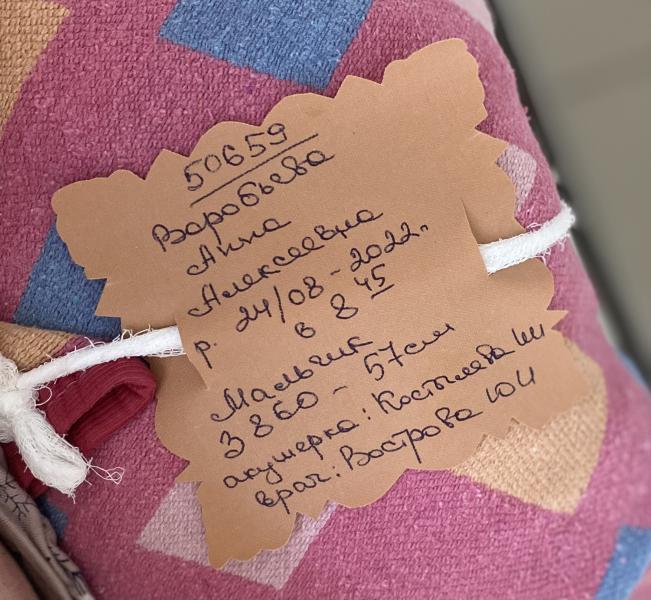 50659
Воробьева
Анна
Алексеевна
р. 24/08-2022г.
в 8 45
Мальчик
3860 - 57см
акушерка: Костылева
врач: Вострова ЮИ